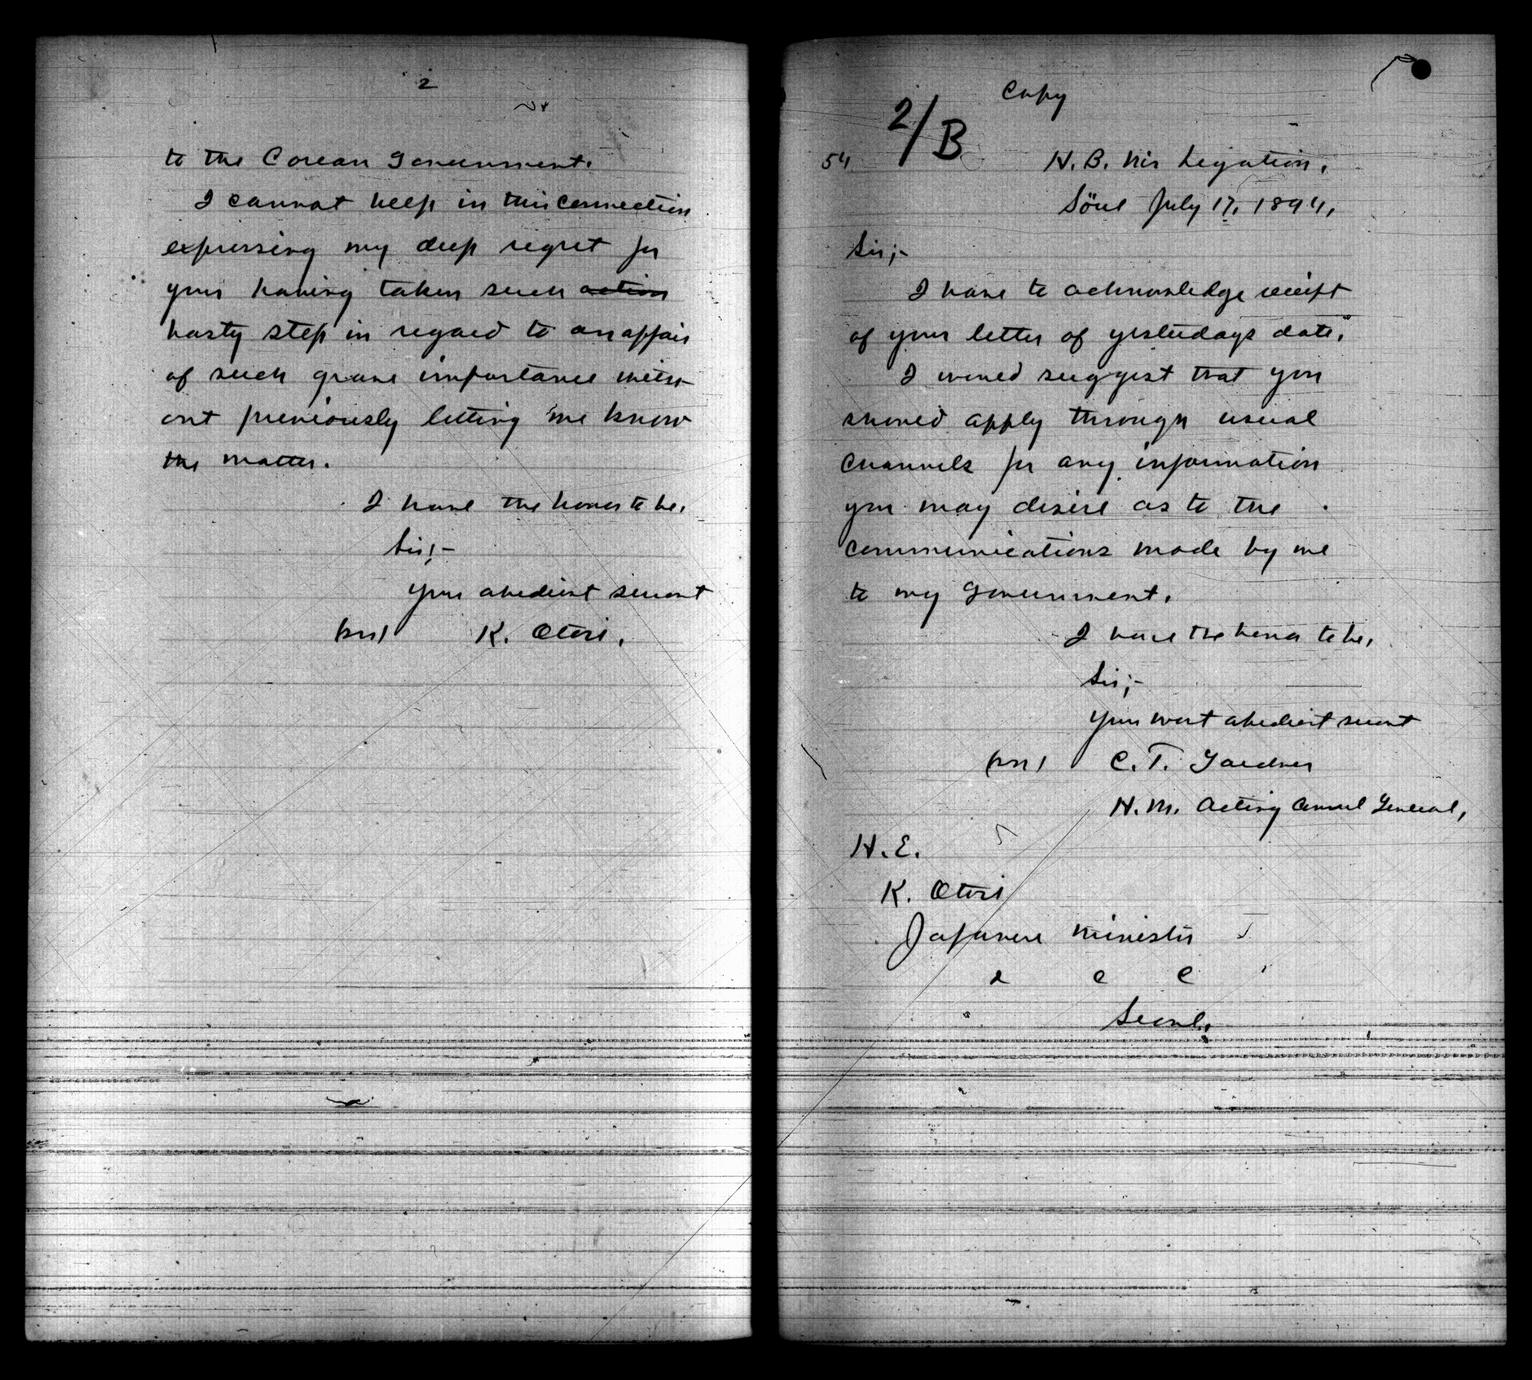 2
to the Corean Government.
I cannot help in this connection
expressing my deep regret for
your having taken such action
hasty step in regard to an affair
of such grave importance with-
out previously letting me know
the matter.
I have the honor to be,
Sir;-
Your obedient servant
K. Otori.
Copy
2/B
54
H. B. M's Legation,
Söul July 17, 1894,
Sir;-
I have to acknowledge receipt
of your letter of yesterdays date.
I would suggest that you
should apply through usual
channels for any information
you may desire as to the
communications made by me
to my Government.
I have the honor to be,
Sir;-
Your most obedient servant
C. T. Gardner
H. M. Acting Consul General,
H. E.
K. Otori
Japanese Minister
Seoul.